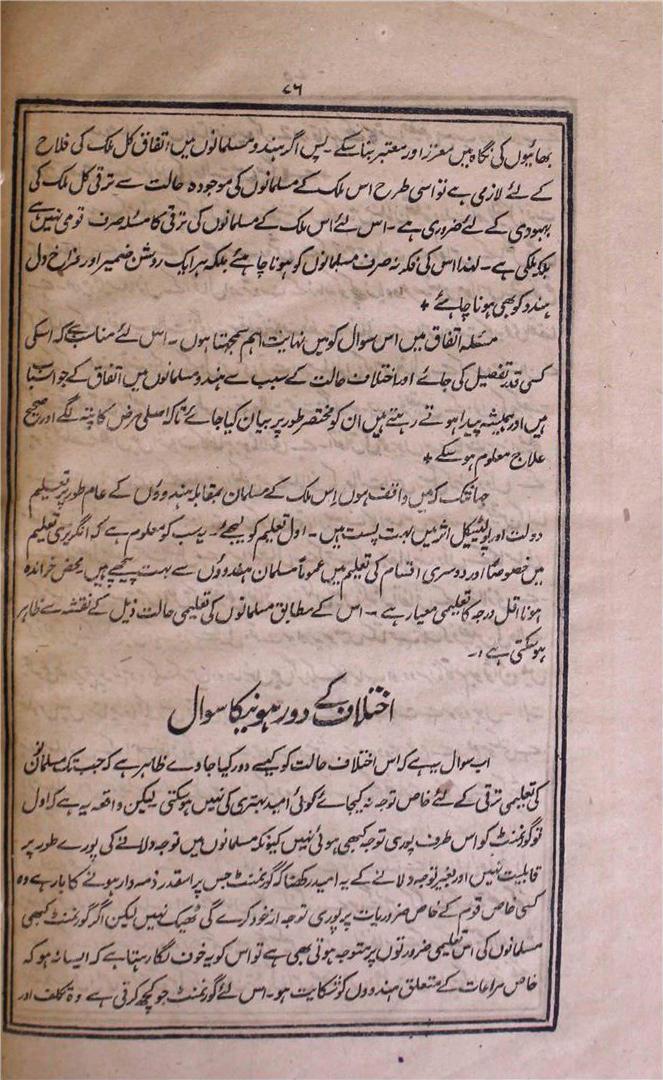 ۷۶
بھائیوں کی نگاہ میں معزز اور معتبر بنا سکے۔ پس اگر ہندو مسلمانوں میں اتفاق کل ملک کی فلاح
کے لئے لازمی ہے تو اسی طرح اس ملک کے مسلمانوں کی موجودہ حالت سے ترقی کل ملک کی
بہبودی کے لئے ضروری ہے۔ اس لئے اس ملک کے مسلمانوں کی ترقی کا مسئلہ صرف قومی نہیں ہے
بلکہ ملکی ہے۔ لہذا اس کی فکر نہ صرف مسلمانوں کو ہونا چاہئے بلکہ ہر ایک روشن ضمیر اور فراخ دل
ہندو کو بھی ہونا چاہئے +
مسئلہ اتفاق میں اس سوال کو میں نہایت اہم سمجھتا ہوں۔ اس لئے مناسب ہے کہ اسکی
کسی قدر تفصیل کی جائے اور اختلاف حالت کے سبب سے ہندو مسلمانوں میں اتفاق کے جو اسباب
ہیں اور ہمیشہ پیدا ہوتے رہتے ہیں ان کو مختصر طور پر بیان کیا جائے تاکہ اصلی مرض کا پتہ لگے اور صحیح
علاج معلوم ہو سکے +
جہانتک کہ میں واقف ہوں اِس ملک کے مسلمان بمقابلہ ہندوؤں کے عام طور پر تعلیم
دولت اور پولیٹیکل اثر میں بہت پست ہیں۔ اول تعلیم کو لیجئے۔ یہ سب کو معلوم ہے کہ انگریزی تعلیم
میں خصوصاً اور دوسری اقسام کی تعلیم میں عموماً مسلمان ہندوؤں سے بہت پیچھے ہیں۔ محض خواندہ
ہونا اقل درجہ کا تعلیمی معیار ہے۔ اس کے مطابق مسلمانوں کی تعلیمی حالت ذیل کے نقشہ سے ظاہر
ہو سکتی ہے :۔
اختلاف کے دور ہونیکا سوال
اب سوال یہ ہے کہ اس اختلاف حالت کو کیسے دور کیا جاوے ظاہر ہے کہ جب تک مسلمانوں
کی تعلیمی ترقی کے لئے خاص توجہ نہ کیجائے کوئی امید بہتری کی نہیں ہو سکتی لیکن واقعہ یہ ہے کہ اول
تو گورنمنٹ کو اس طرف پوری توجہ کبھی ہوئی نہیں کیونکہ مسلمانوں میں توجہ دلانے کی پورے طور پر
قابلیت نہیں اور بغیر توجہ دلانے کے یہ امید رکھنا کہ گورنمنٹ جس پر اسقدر ذمہ دار ہونے کا بار ہے وہ
کسی خاص قوم کے خاص ضروریات پر پوری توجہ از خود کرے گی ٹھیک نہیں لیکن اگر گورنمنٹ کبھی
مسلمانوں کی اس تعلیمی ضرورتوں پر متوجہ ہوتی بھی ہے تو اس کو یہ خوف لگا رہتا ہے کہ ایسا نہ ہو کہ
خاص مراعات کے متعلق ہندووں کو شکایت ہو۔ اس لئے گورنمنٹ جو کچھ کرتی ہے وہ تکلف اور